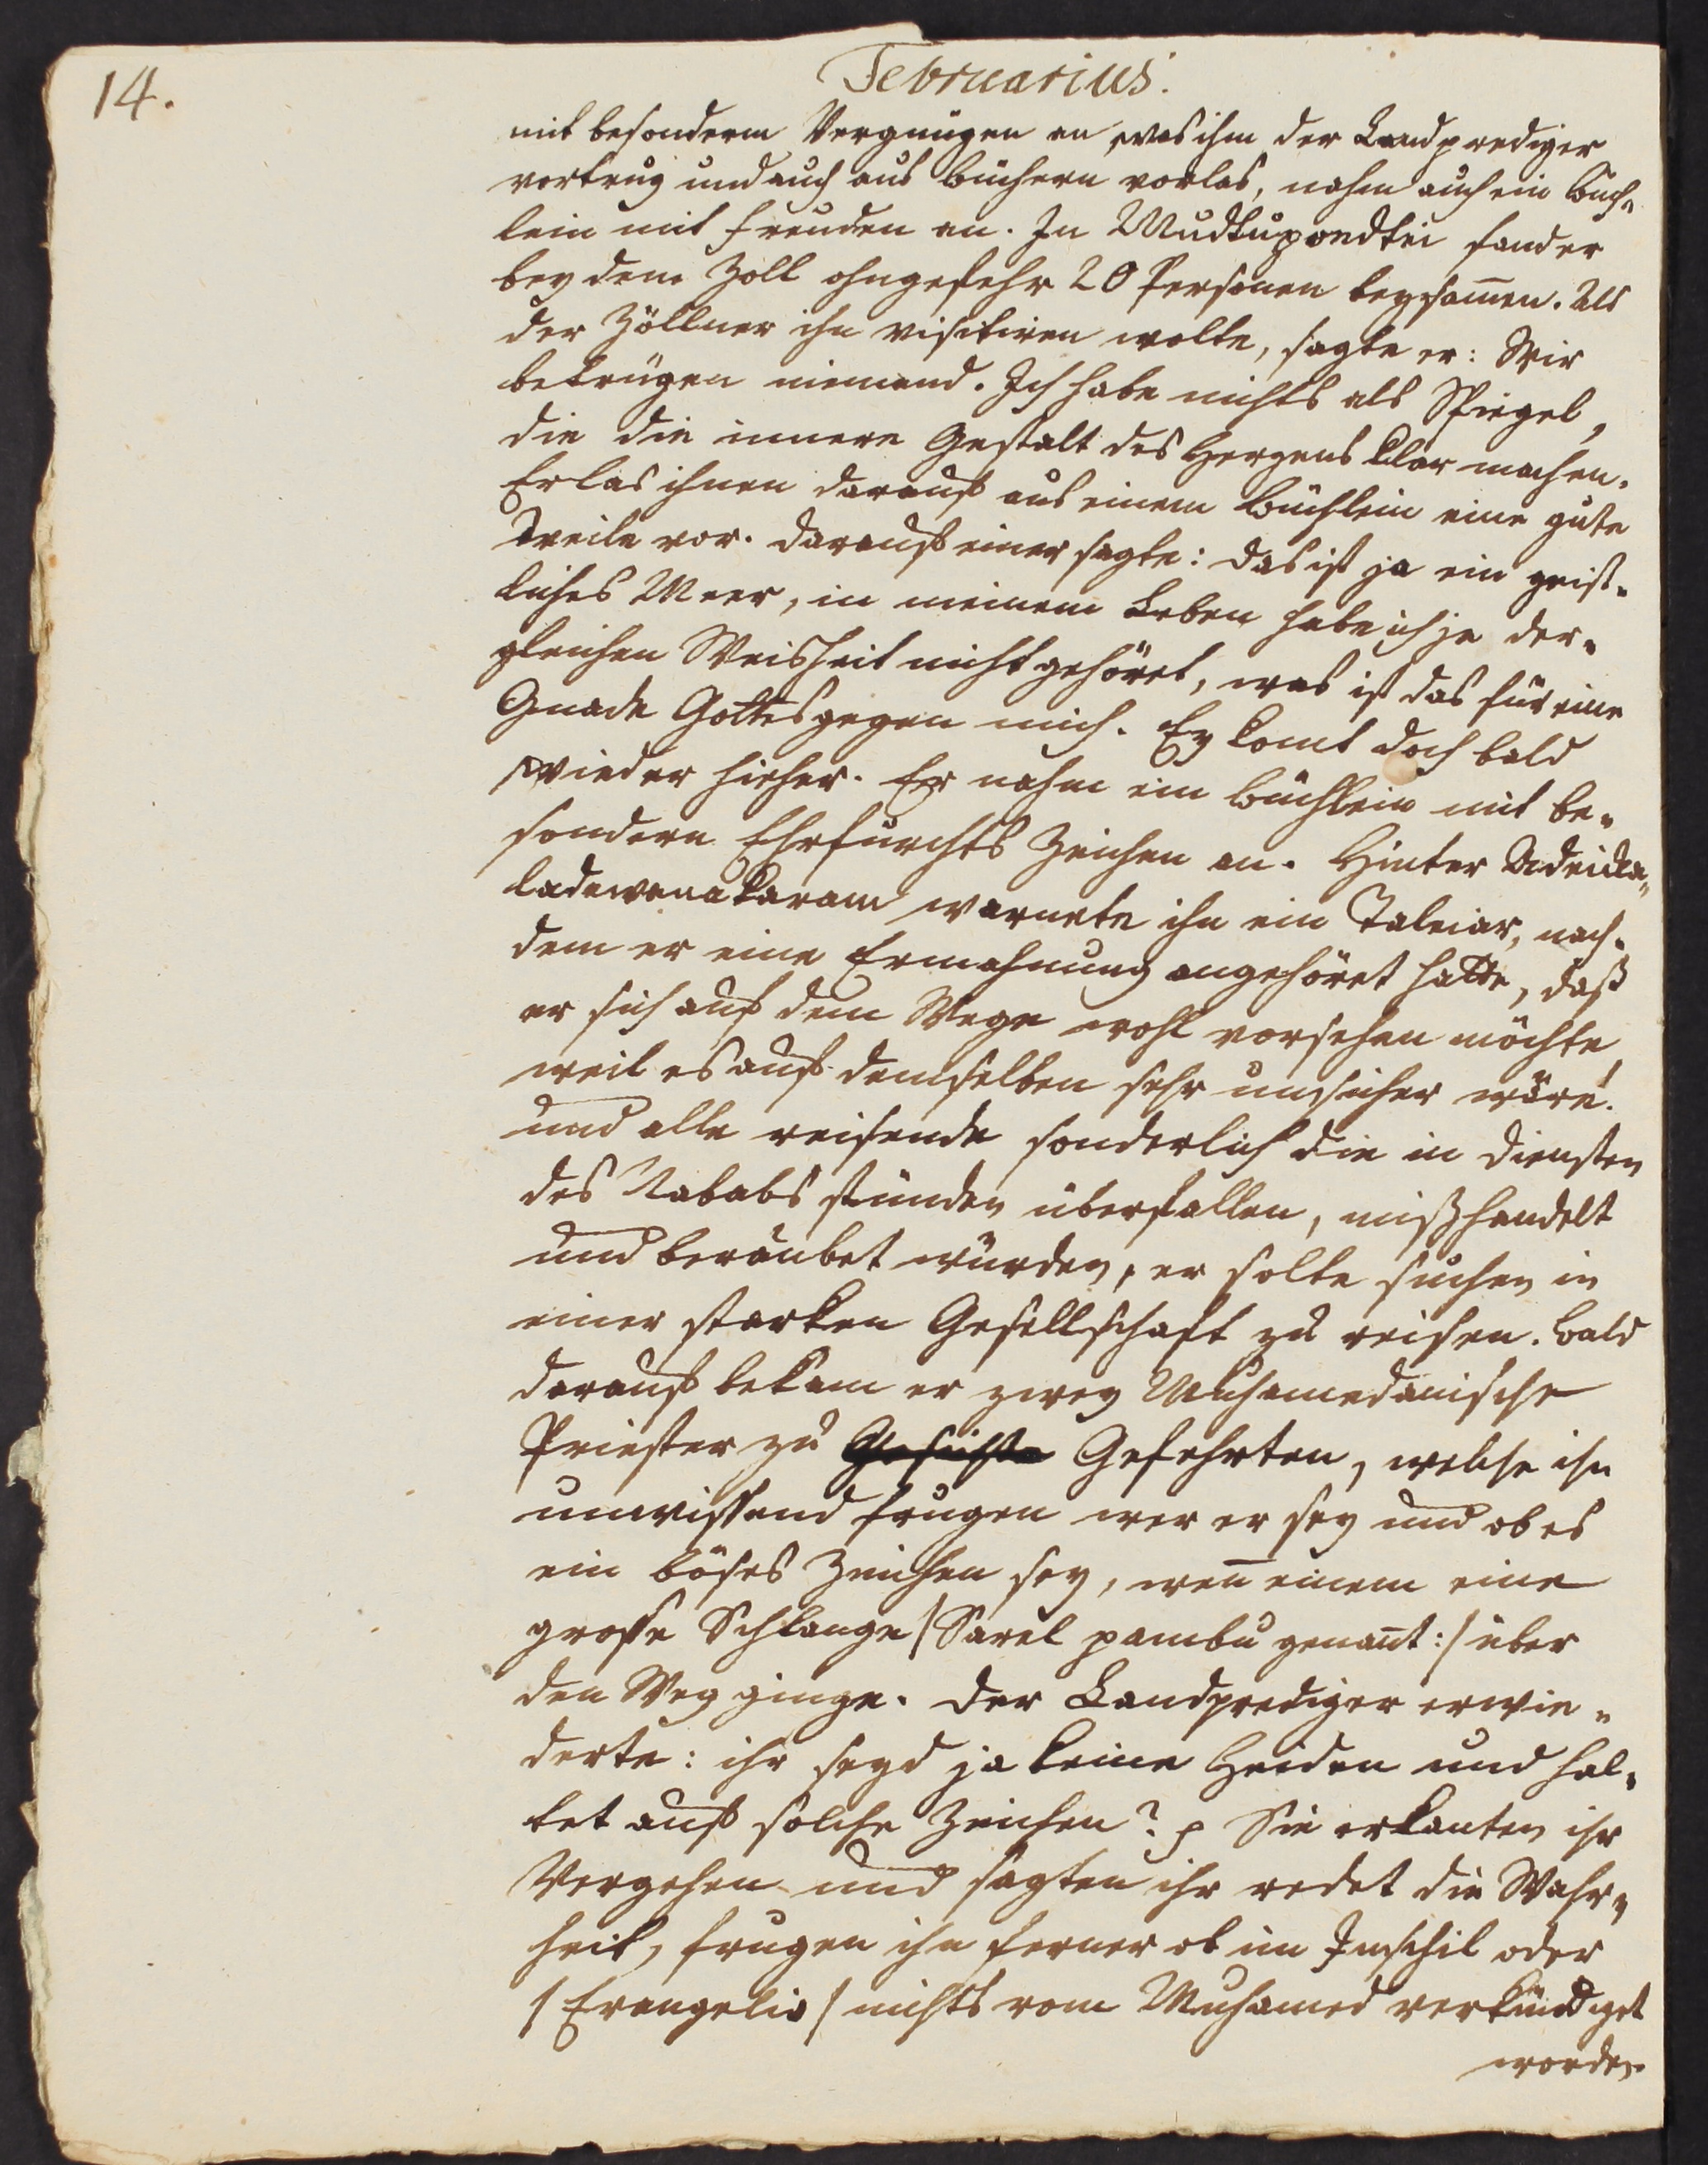 14.
Februarius.
mit besonderm Vergnügen an was ihm der Landprediger
vortrug und auch aus büchern vorlas, nahm auch ein büch-
lein mit Freuden an. In Mudtupondtei fand er
bey dem Zoll ohngefehr 20 Personen beysam̄en. Als
der Zöllner ihn visitiren wolte, sagte er: Wir
betrügen niemand. Ich habe nichts als Spiegel,
die die innere Gestalt des Herzens klar machen.
Er las ihnen darauf aus einem büchlein eine gute
Weile vor. darauf einer sagte: das ist ja ein geist-
liches Meer, in meinem Leben habe ich ja der-
gleichen Weisheit nicht gehöret, was ist das für eine
Gnade Gottes gegen mich. Ey komt doch bald
wieder hieher. Er nahm ein büchlein mit be-
sondern Ehrfurchts Zeichen an. Hinter Adeicka-
ladewanakaram warnete ihn ein Taleiar, nach-
dem er eine Ermahnung angehöret hatte, daß
er sich auf dem Wege wohl vorsehen möchte,
weil es auf demselben sehr unsicher wäre.
und alle reisende sonderlich die in Diensten
des Nababs stünden überfallen, mißhandelt
und beraubet würden, er solte suchen in
einer starken Gesellschaft zu reisen. bald
darauf bekam er zwey Muhamedanische
Priester zu Gefehrten, welche ihn
unwissend frugen wer er sey und ob es
ein böses Zeichen sey, wen̄ einem eine
grosse Schlange /Sarel pambu genan̄t:/ über
den Weg ginge. Der Landprediger erwie-
derte: ihr seyd ja keine Heiden und hal-
tet auf solche Zeichen? p Sie erkanten ihr
Vergehen und sagten ihr redet die Wahr-
heit, frugen ihn ferner ob im Inschil oder
/Evangelio/ nichts vom Muhamed verkündiget
worden